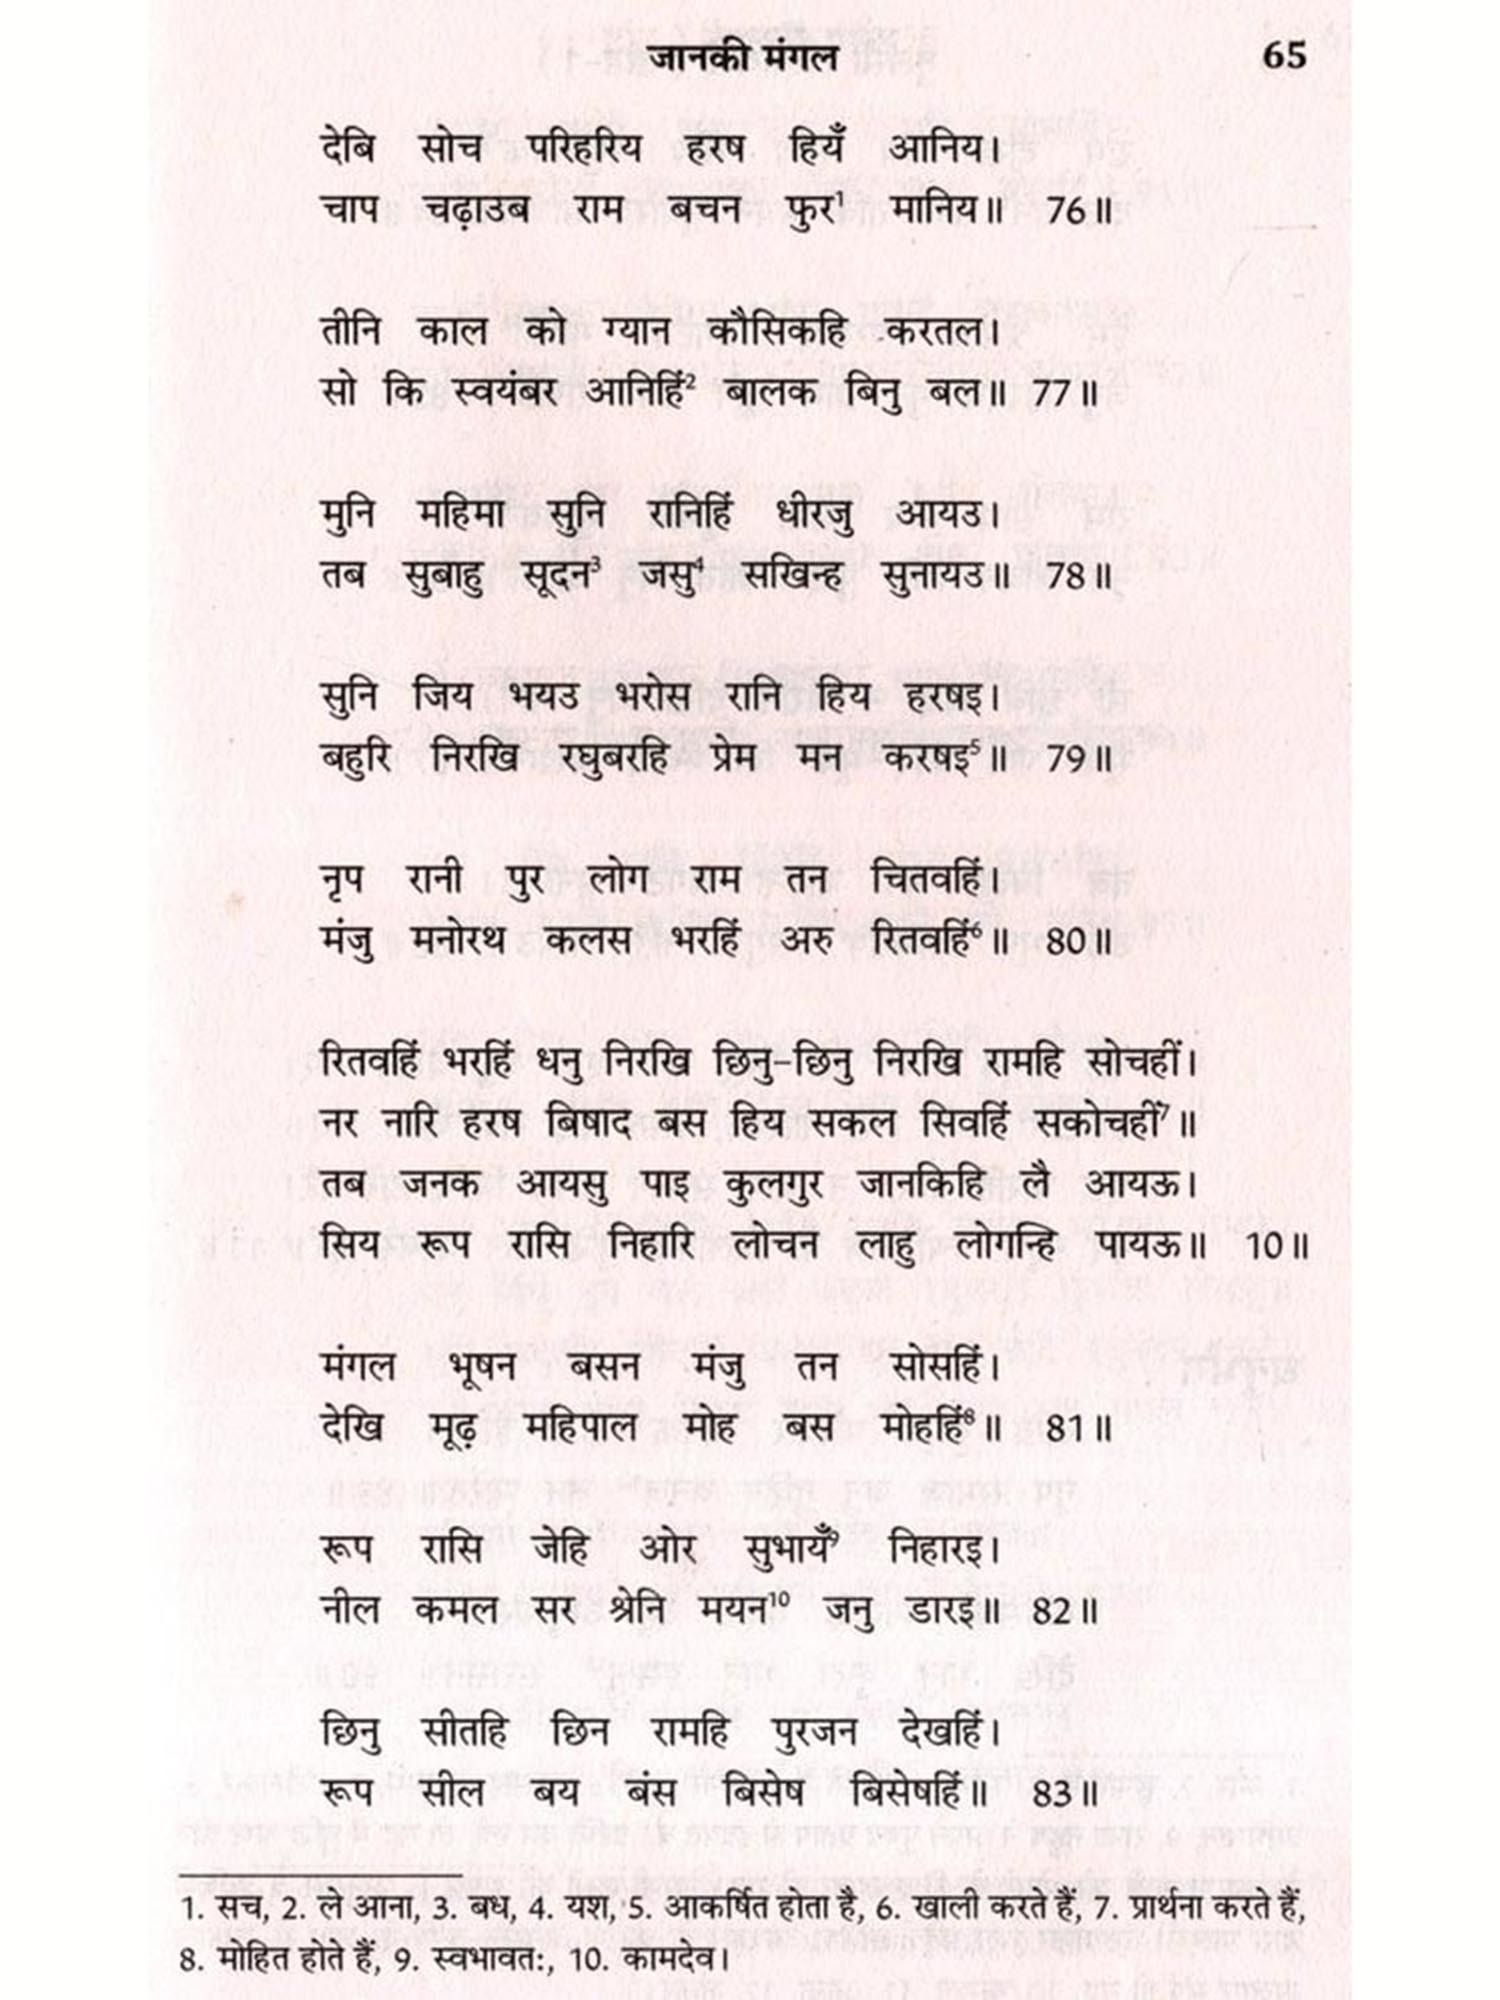 जानकी मंगल 65
देबि सोच परिहरिय हरष हियँ आनिय।
चाप चढ़ाउब राम बचन फुर¹ मानिय॥ 76॥
तीनि काल को ग्यान कौसिकहि करतल।
सो कि स्वयंबर आनिहिं² बालक बिनु बल॥ 77॥
मुनि महिमा सुनि रानिहिं धीरजु आयउ।
तब सुबाहु सूदन³ जसु⁴ सखिन्ह सुनायउ॥ 78॥
सुनि जिय भयउ भरोस रानि हिय हरषइ।
बहुरि निरखि रघुबरहि प्रेम मन करषइ⁵॥ 79॥
नृप रानी पुर लोग राम तन चितवहिं।
मंजु मनोरथ कलस भरहिं अरु रितवहिं⁶॥ 80॥
रितवहिं भरहिं धनु निरखि छिनु-छिनु निरखि रामहि सोचहीं।
नर नारि हरष बिषाद बस हिय सकल सिवहिं सकोचहीं⁷॥
तब जनक आयसु पाइ कुलगुर जानकिहि लै आयऊ।
सिय रूप रासि निहारि लोचन लाहु लोगन्हि पायऊ॥ 10॥
मंगल भूषन बसन मंजु तन सोसहिं।
देखि मूढ़ महिपाल मोह बस मोहहिं⁸॥ 81॥
रूप रासि जेहि ओर सुभायँ⁹ निहारइ।
नील कमल सर श्रेनि मयन¹⁰ जनु डारइ॥ 82॥
छिनु सीतहि छिन रामहि पुरजन देखहिं।
रूप सील बय बंस बिसेष बिसेषहिं॥ 83॥
1. सच, 2. ले आना, 3. बध, 4. यश, 5. आकर्षित होता है, 6. खाली करते हैं, 7. प्रार्थना करते हैं,
8. मोहित होते हैं, 9. स्वभावतः, 10. कामदेव।